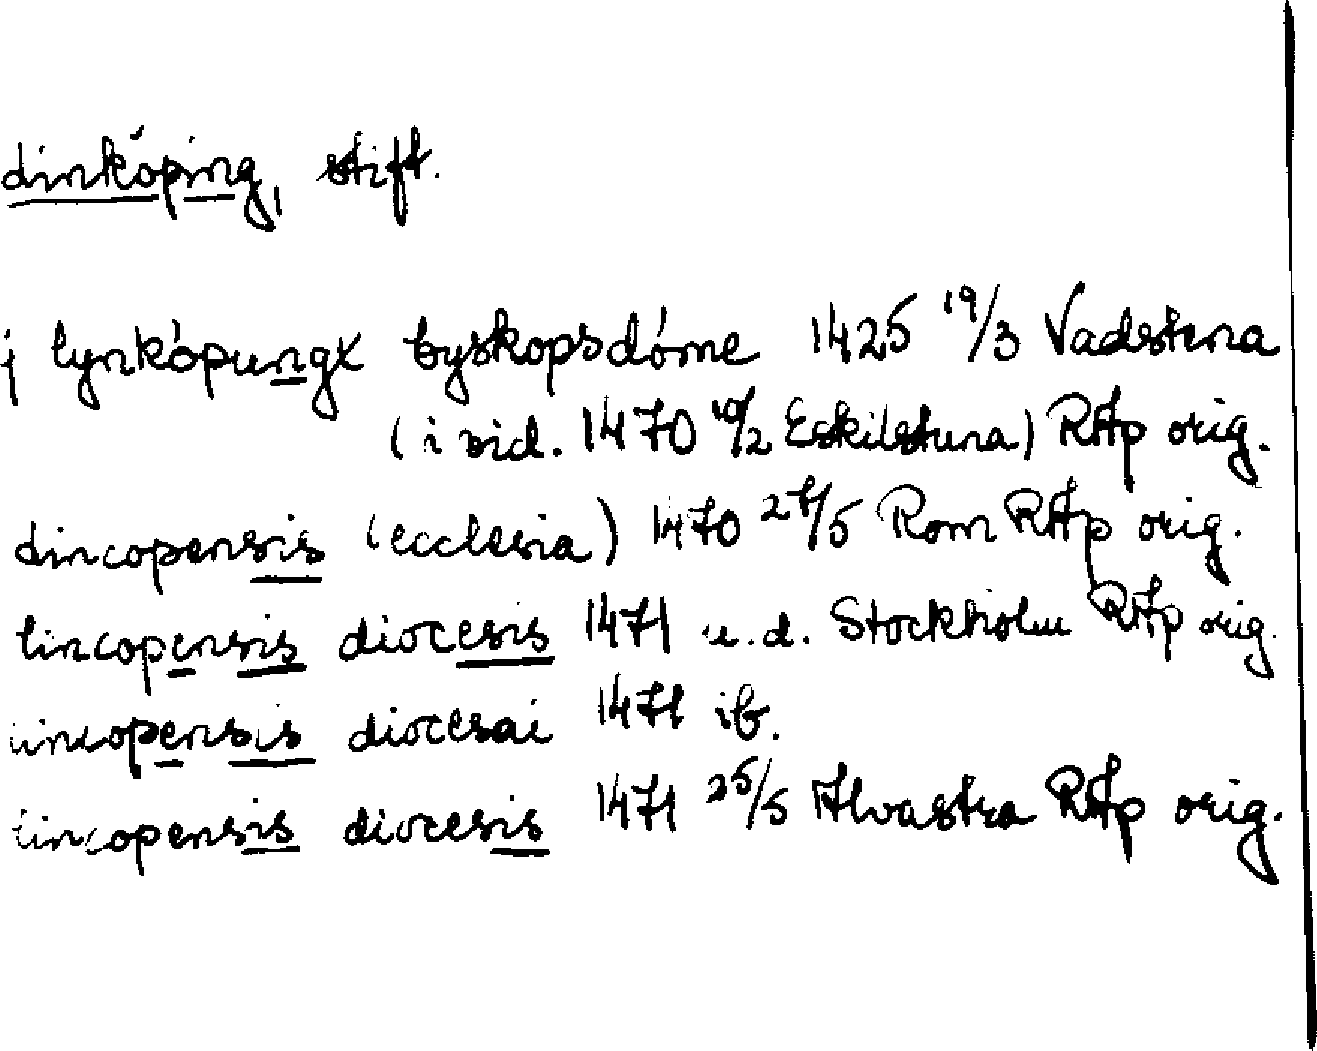 Linköping, stift.
j lynköpungx byskopsdöme 1425 19/3 Vadstena
(i vid. 1470 10/2 Eskilstuna) RAp orig.
Lincopensis (ecclesia) 1470 27/5 Rom RAp orig.
lincopensis diocesis 1471 u.d. Stockholm RAp orig.
lincopensis diocesai 1471 ib.
lincopensis diocesis 1471 25/5 Alvastra RAp orig.